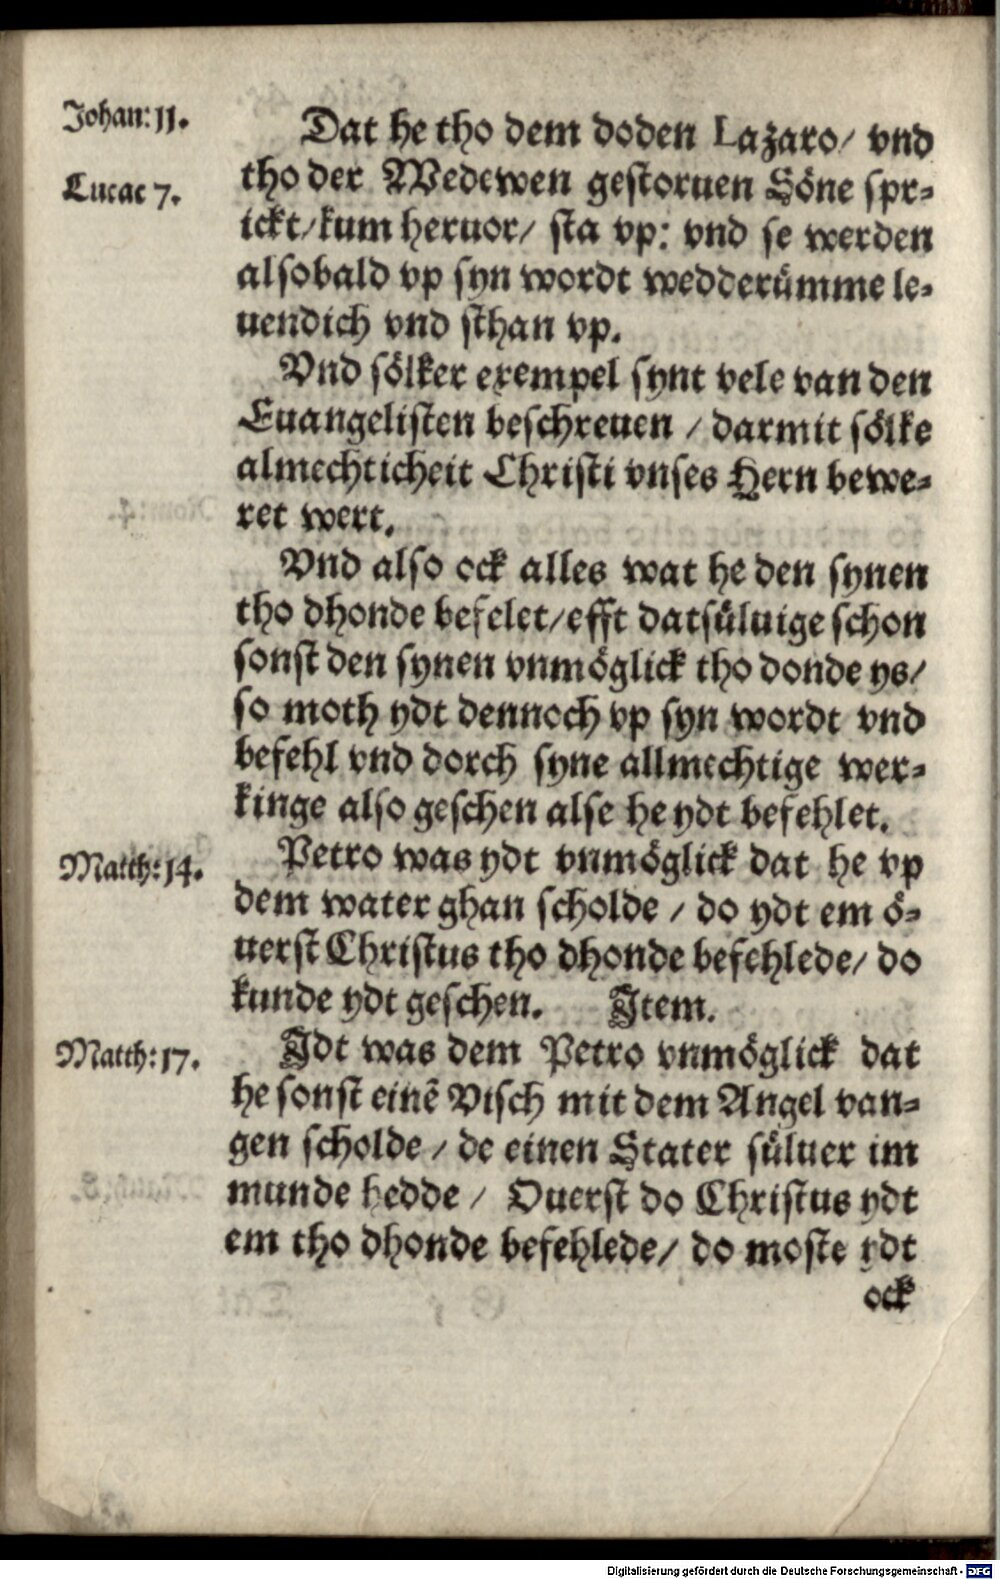 Johan: 11.
Dat he tho dem doden Lazaro/ vnd
Lucae 7.
tho der Wedewen gestoruen Söne spr=
ickt/kum heruor/ sta vp: vnd se werden
alsobald vp syn wordt wedderümme le=
uendich vnd sthan vp.
Vnd sölker exempel synt vele van den
Euangelisten beschreuen / darmit sölke
almechticheit Christi vnses Hern bewe=
ret wert.
Vnd also ock alles wat he den synen
tho dhonde befelet/efft datsüluige schon
sonst den synen vnmöglick tho donde ys/
so moth ydt dennoch vp syn wordt vnd
befehl vnd dorch syne allmechtige wer=
kinge also geschen alse he ydt befehlet.
Matth: 14.
Petro was ydt vnmöglick dat he vp
dem water ghan scholde / do ydt em ö=
uerst Christus tho dhonde befehlede/ do
kunde ydt geschen. Item.
Matth: 17.
Idt was dem Petro vnmöglick dat
he sonst einē Visch mit dem Angel van=
gen scholde / de einen Stater süluer im
munde hedde / Ouerst do Christus ydt
em tho dhonde befehlede/ do moste ydt
ock
Digitalisierung gefördert durch die Deutsche Forschungsgemeinschaft - DFG